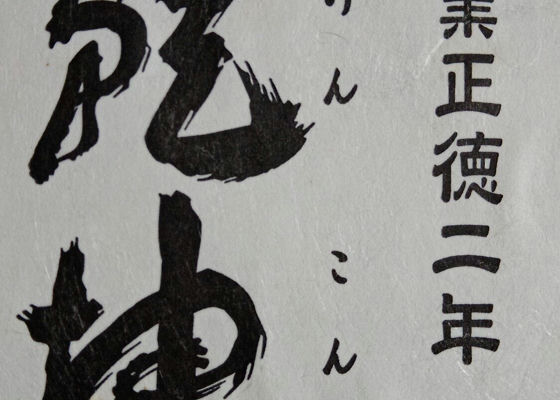 業正徳二年
んこん
乾坤